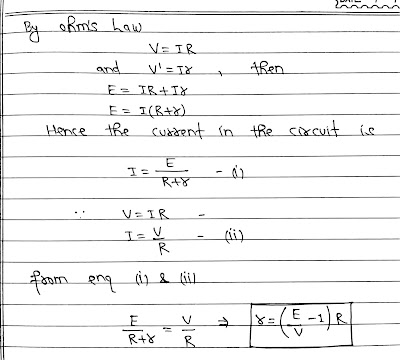 By ohm's Law
V = IR
and V' = Ir , then
E = IR + Ir
E = I(R+r)
Hence the current in the circuit is
I = E/(R+r) - (i)
∵ V = IR -
I = V/R - (ii)
from enq (i) & (ii)
E/(R+r) = V/R ⇒ r = (E/V - 1) R